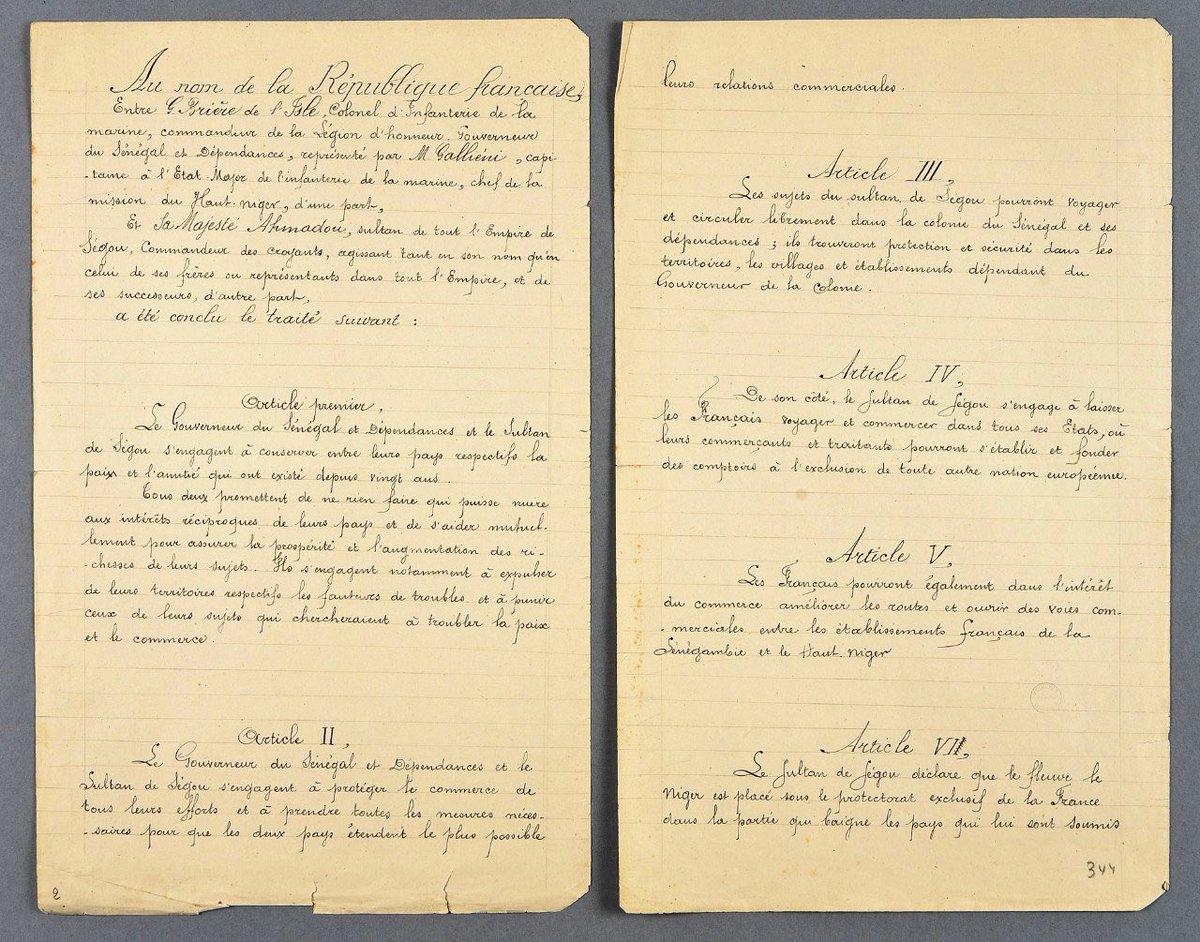 Au nom de la République française,
Entre G. Brière de l'Isle, Colonel d'Infanterie de la
marine, commandeur de la Légion d'honneur, Gouverneur
du Sénégal et Dépendances, représenté par M. Galliéni, capi-
-taine à l'Etat-Major de l'infanterie de la marine, chef de la
mission du Haut-Niger, d'une part,
Et Sa Majesté Ahmadou, sultan de tout l'Empire de
Ségou, Commandeur des croyants, agissant tant en son nom qu'en
celui de ses frères ou représentants dans tout l'Empire, et de
ses successeurs, d'autre part,
a été conclu le traité suivant :
Article premier,
Le Gouverneur du Sénégal et Dépendances et le Sultan
de Ségou s'engagent à conserver entre leurs pays respectifs la
paix et l'amitié qui ont existé depuis vingt ans.
Tous deux promettent de ne rien faire qui puisse nuire
aux intérêts réciproques de leurs pays et de s'aider mutuel-
-lement pour assurer la prospérité et l'augmentation des ri-
-chesses de leurs sujets. Ils s'engagent notamment à expulser
de leurs territoires respectifs les fauteurs de troubles et à punir
ceux de leurs sujets qui chercheraient à troubler la paix
et le commerce.
Article II,
Le Gouverneur du Sénégal et Dépendances et le
Sultan de Ségou s'engagent à protéger le commerce de
tous leurs efforts et à prendre toutes les mesures néces-
-saires pour que les deux pays étendent le plus possible
2
leurs relations commerciales.
Article III,
Les sujets du sultan de Ségou pourront voyager
et circuler librement dans la colonie du Sénégal et ses
dépendances ; ils trouveront protection et sécurité dans les
territoires, les villages et établissements dépendant du
Gouverneur de la colonie.
Article IV,
De son côté, le Sultan de Ségou s'engage à laisser
les Français voyager et commercer dans tous ses Etats, où
leurs commerçants et traitants pourront s'établir et fonder
des comptoirs à l'exclusion de toute autre nation européenne.
Article V,
Les Français pourront également dans l'intérêt
du commerce améliorer les routes et ouvrir des voies com-
-merciales entre les établissements français de la
Sénégambie et le Haut-Niger
Article VI,
Le Sultan de Ségou déclare que le fleuve le
Niger est placé sous le protectorat exclusif de la France
dans la partie qui baigne les pays qui lui sont soumis
344